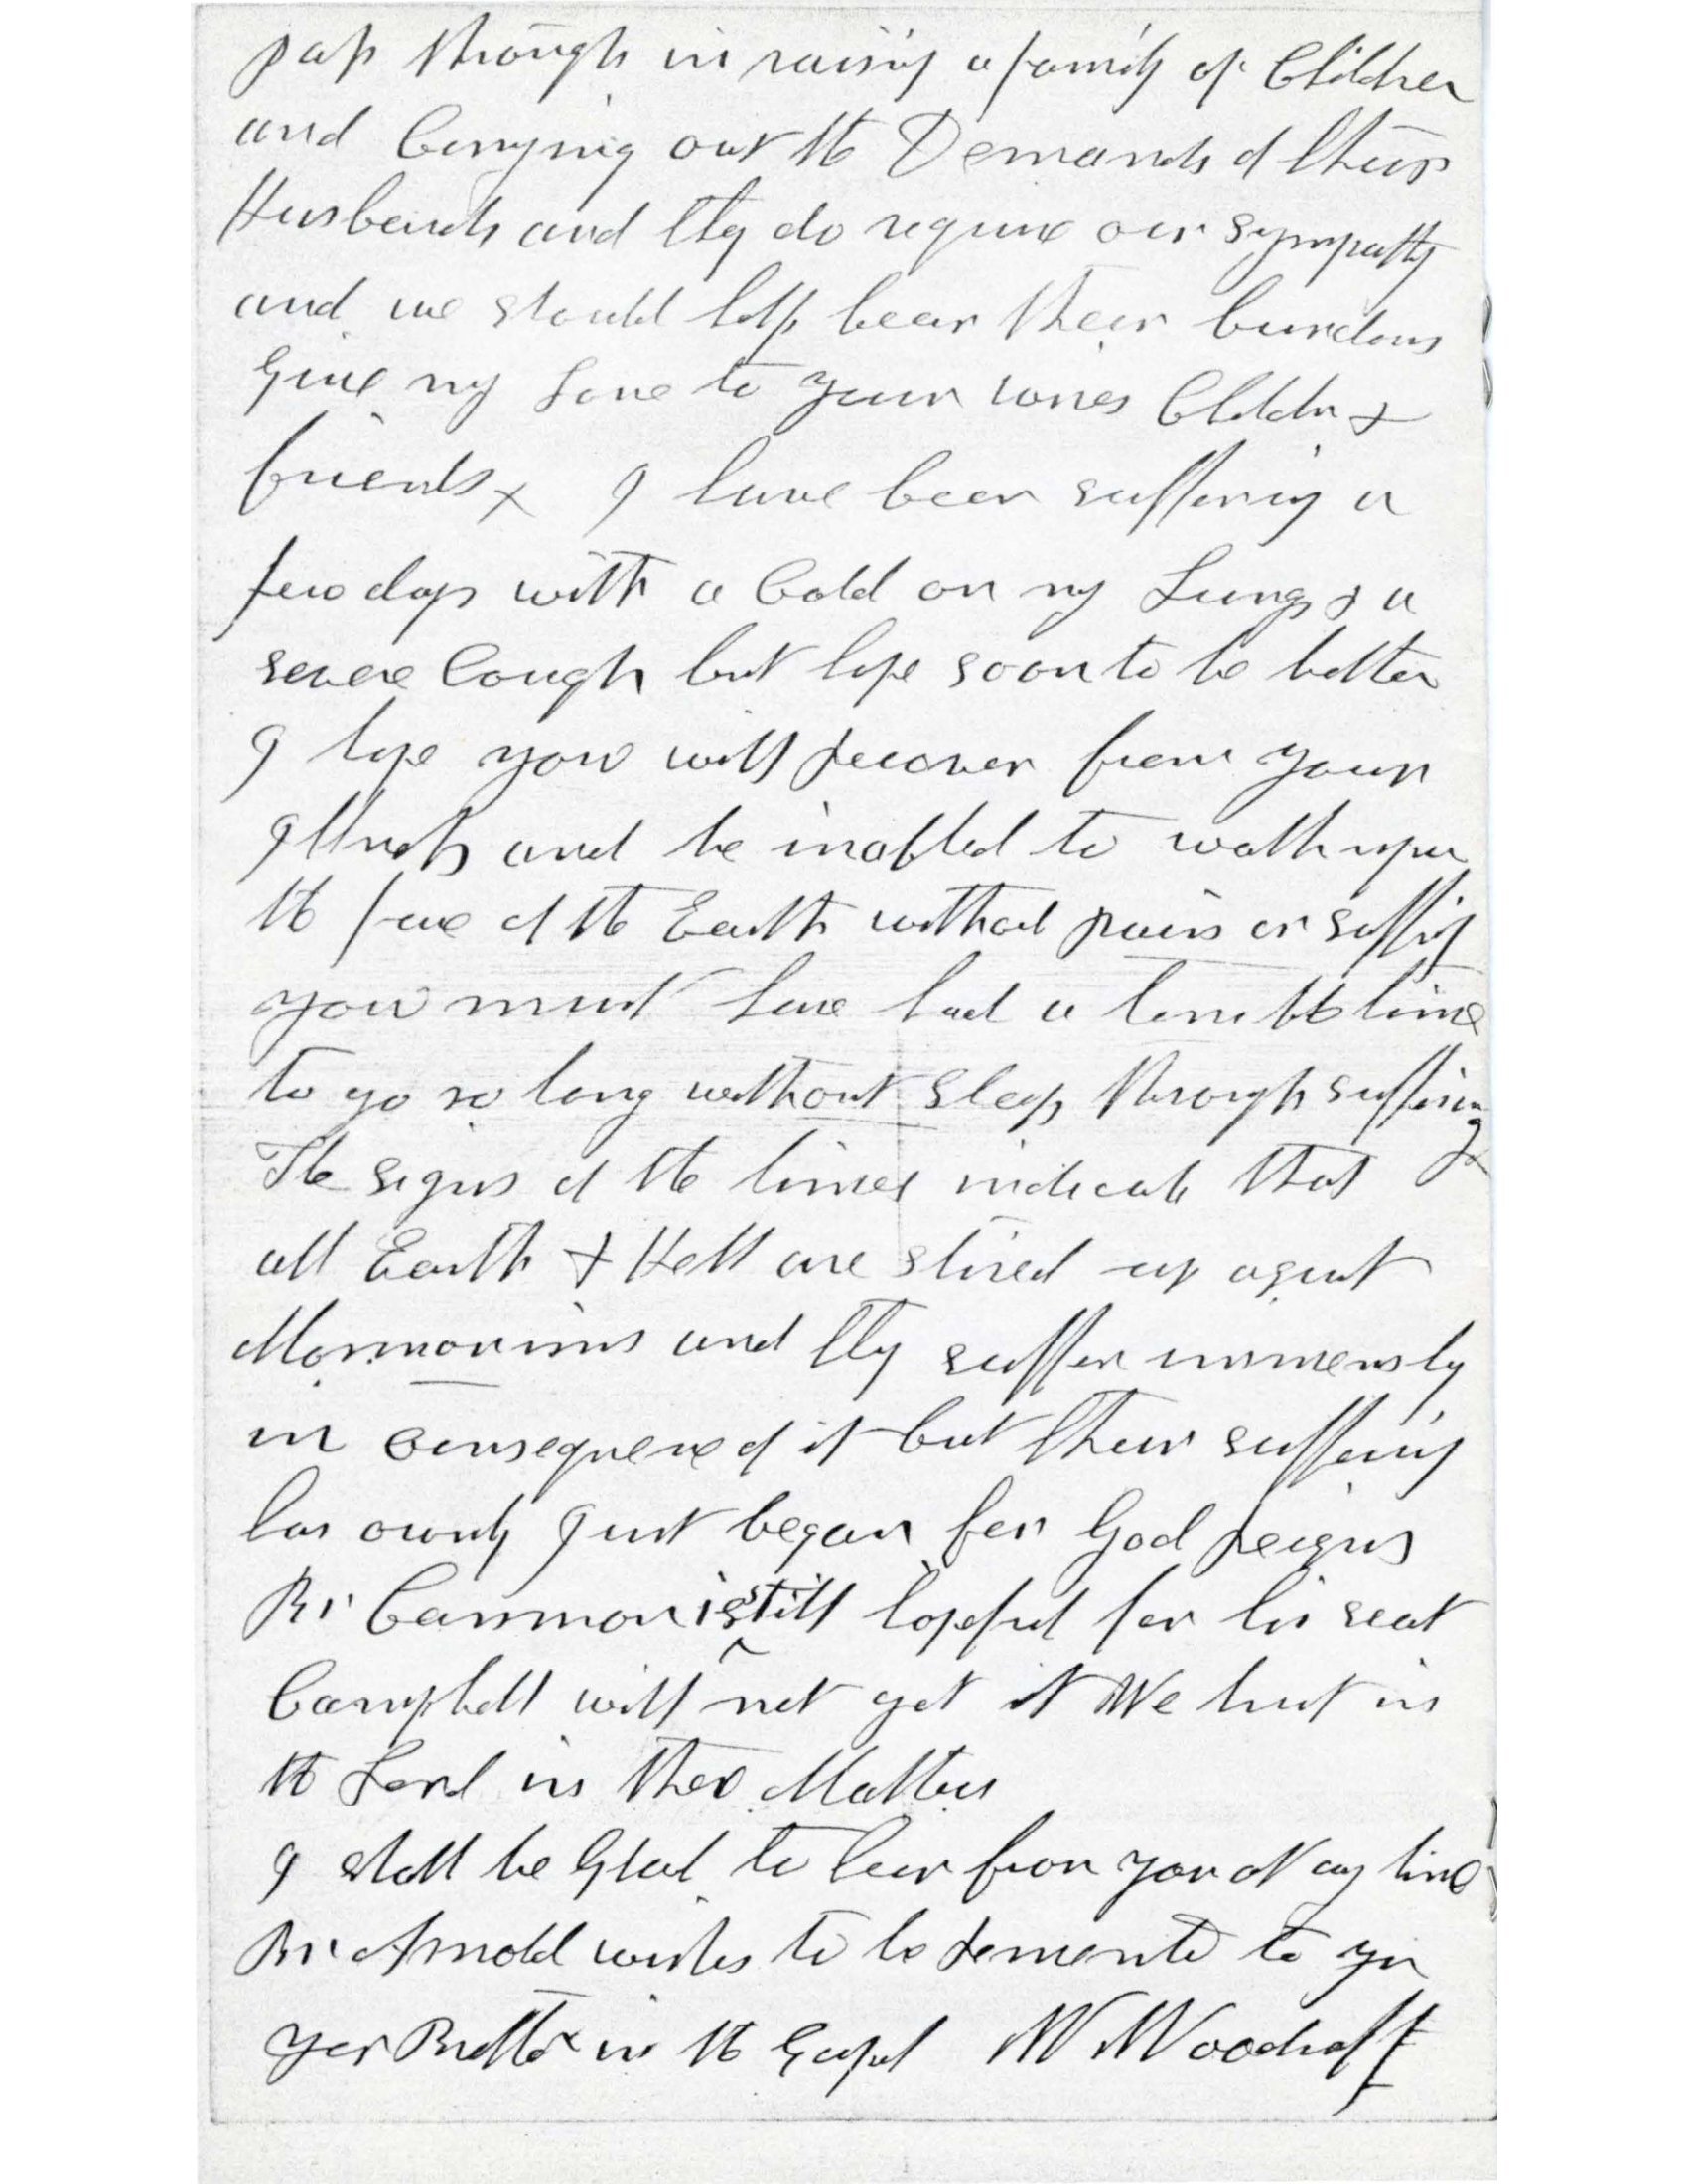 pass through in raising a family of Children
and Carrying out the Demands of their
Husbands and they do require our sympathy
and we should help bear their burdens
Give my Love to your wives Children &
friends, I have been suffering a
few days with a Cold on my Lungs & a
severe Cough but hope soon to be better
I hope you will recover from your
Illness and be inabled to walk upon
the face of the Earth without pain or suffering
you must have had a terrible time
to go so long without sleep through suffering
The signs of the times indicate that &
all Earth & Hell are stired up against
Mormonism and they suffer immensly
in consequence of it but their suffering
has ownly Just began for God reigns
Br Cannon is still hopeful for his seat
Campbell will not get it We trust in
the Lord in these Matters
I shall be Glad to hear from you at any time
Br Arnold wishes to be remembered to you
your Brother in the Gospel W Woodruff